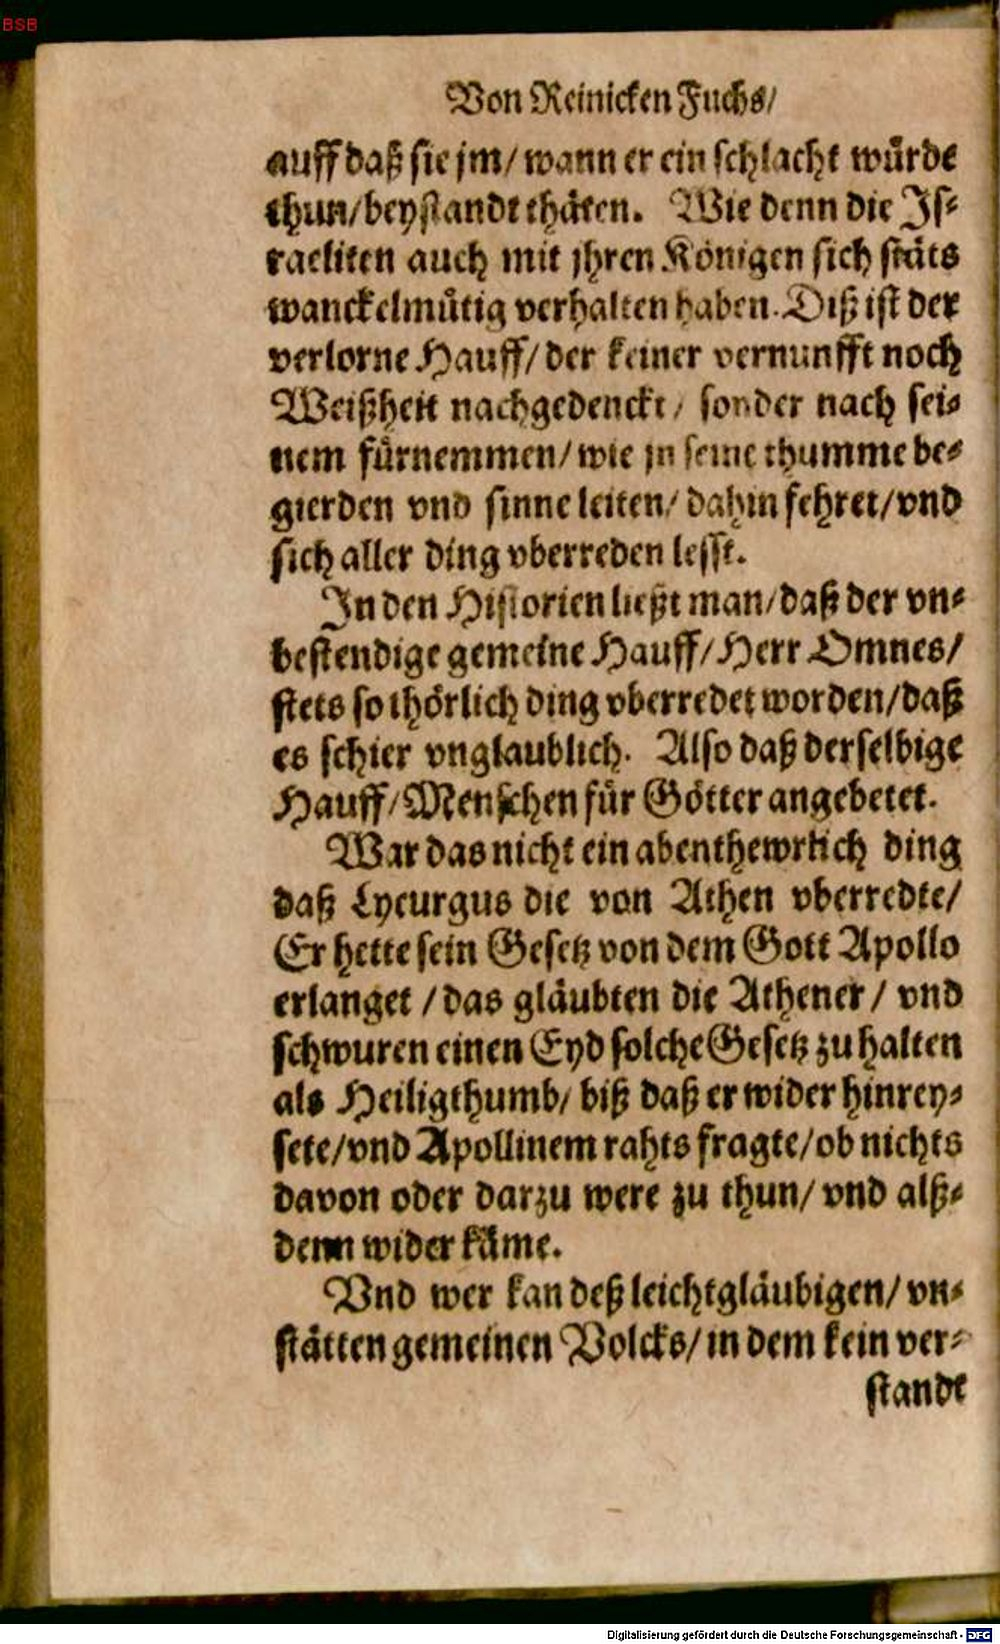 BSB
Von Reinicken Fuchs/
auff daß sie jm/ wann er ein schlacht würde
thun/beystandt thäten. Wie denn die Js⸗
raeliten auch mit jhren Königen sich stäts
wanckelmütig verhalten haben. Diß ist der
verlorne Hauff/ der keiner vernunfft noch
Weißheit nachgedenckt/ sonder nach sei⸗
nem fürnemmen/ wie jn seine thumme be⸗
gierden vnd sinne leiten/ dahin fehret/ vnd
sich aller ding vberreden lesst.
Jn den Historien ließt man/ daß der vn⸗
bestendige gemeine Hauff/ Herr Omnes/
stets so thörlich ding vberredet worden/ daß
es schier vnglaublich. Also daß derselbige
Hauff/ Menschen für Götter angebetet.
War das nicht ein abenthewrlich ding
daß Lycurgus die von Athen vberredte/
Er hette sein Gesetz von dem Gott Apollo
erlanget / das gläubten die Athener / vnd
schwuren einen Eyd solche Gesetz zu halten
als Heiligthumb/ biß daß er wider hinrey⸗
sete/ vnd Apollinem rahts fragte/ ob nichts
davon oder darzu were zu thun/ vnd alß⸗
denn wider käme.
Vnd wer kan deß leichtgläubigen/ vn⸗
stätten gemeinen Volcks/ in dem kein ver⸗
standt
Digitalisierung gefördert durch die Deutsche Forschungsgemeinschaft - DFG